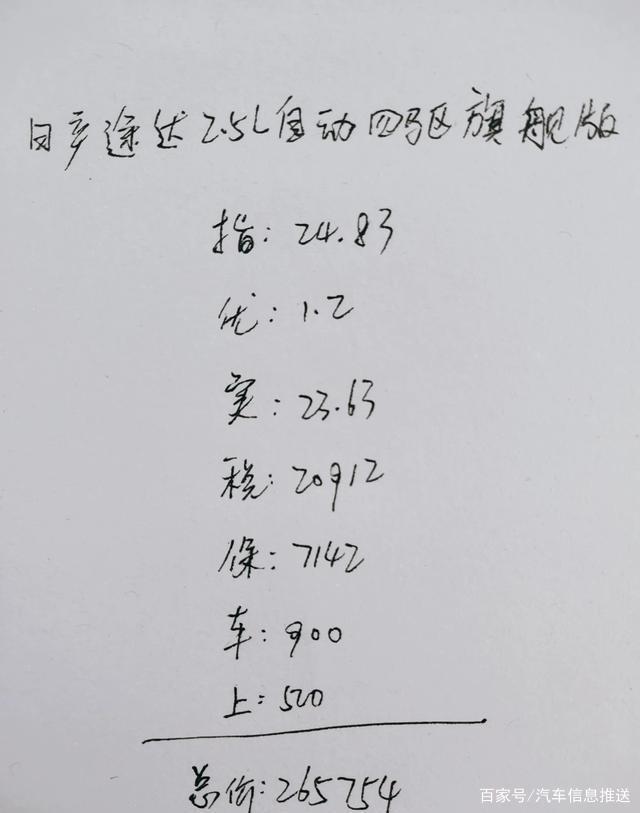 日产途达2.5L自动四驱旗舰版
指:24.83
优:1.2
实:23.63
税:20912
保:7142
车:900
上:500
总价:265754
百家号/汽车信息推送